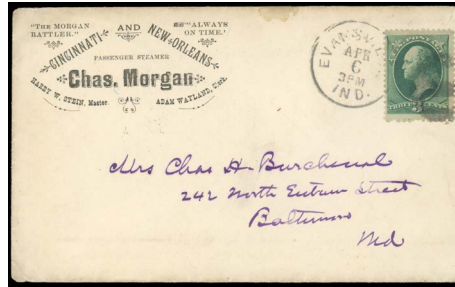 "THE MORGAN RATTLER."
"ALWAYS ON TIME."
CINCINNATI AND NEW-ORLEANS
PASSENGER STEAMER
Chas. Morgan
HARRY W. STEIN, Master. ADAM WAYLAND, Clerk.
EVANSVILLE
APR
6
3PM
IND.
U.S. POSTAGE
THREE CENTS
3
Mrs Chas H Burchenal
242 North Eutaw Street
Baltimore
Md